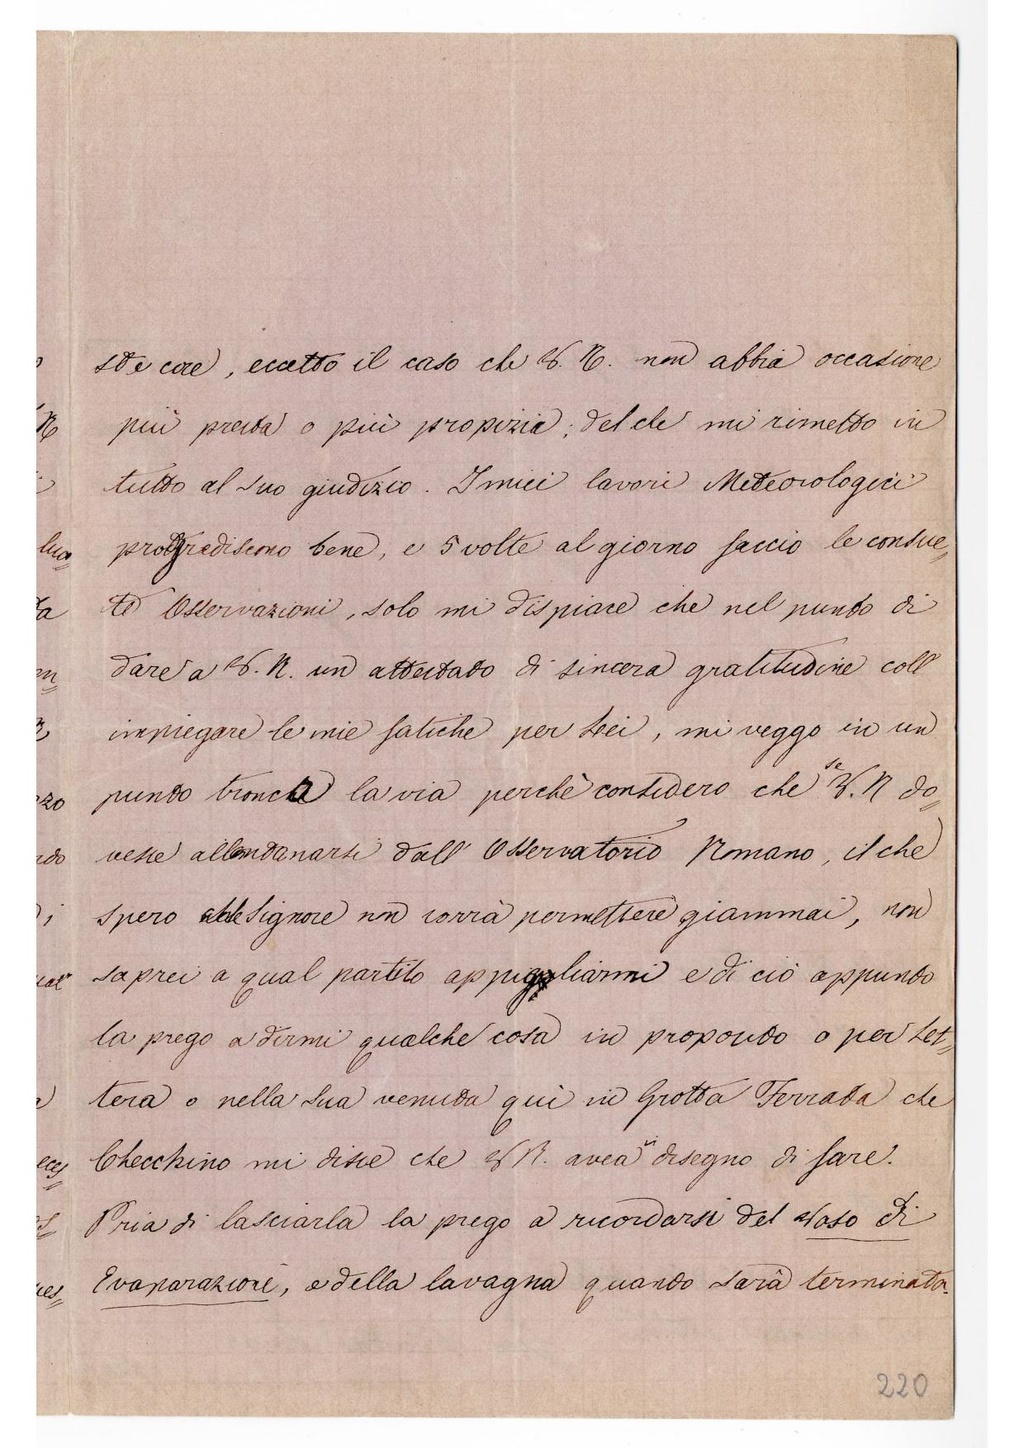 ste cose, eccetto il caso che V. R. non abbia occasione
più presta o più propizia; del che mi rimetto in
tutto al suo giudizio. I miei lavori Meteorologici
progrediscono bene, e 5 volte al giorno faccio le consue=
te Osservazioni, solo mi dispiace che nel punto di
dare a V. R. un attestato di sincera gratitudine coll'
impiegare le mie fatiche per Lei, mi veggo in un
punto tronca la via perchè considero che se V. R do=
vesse allontanarsi dall' Osservatorio Romano, il che
spero che Signore non vorrà permettere giammai, non
saprei a qual partito appigliarmi e di ciò appunto
la prego a dirmi qualche cosa in proposito o per let=
tera o nella sua venuta quì in Grotta Ferrata che
Checchino mi disse che V R. avea in disegno di fare.
Pria di lasciarla la prego a ricordarsi del Vaso di
Evaparazione, e della lavagna quando sarà terminata.
220